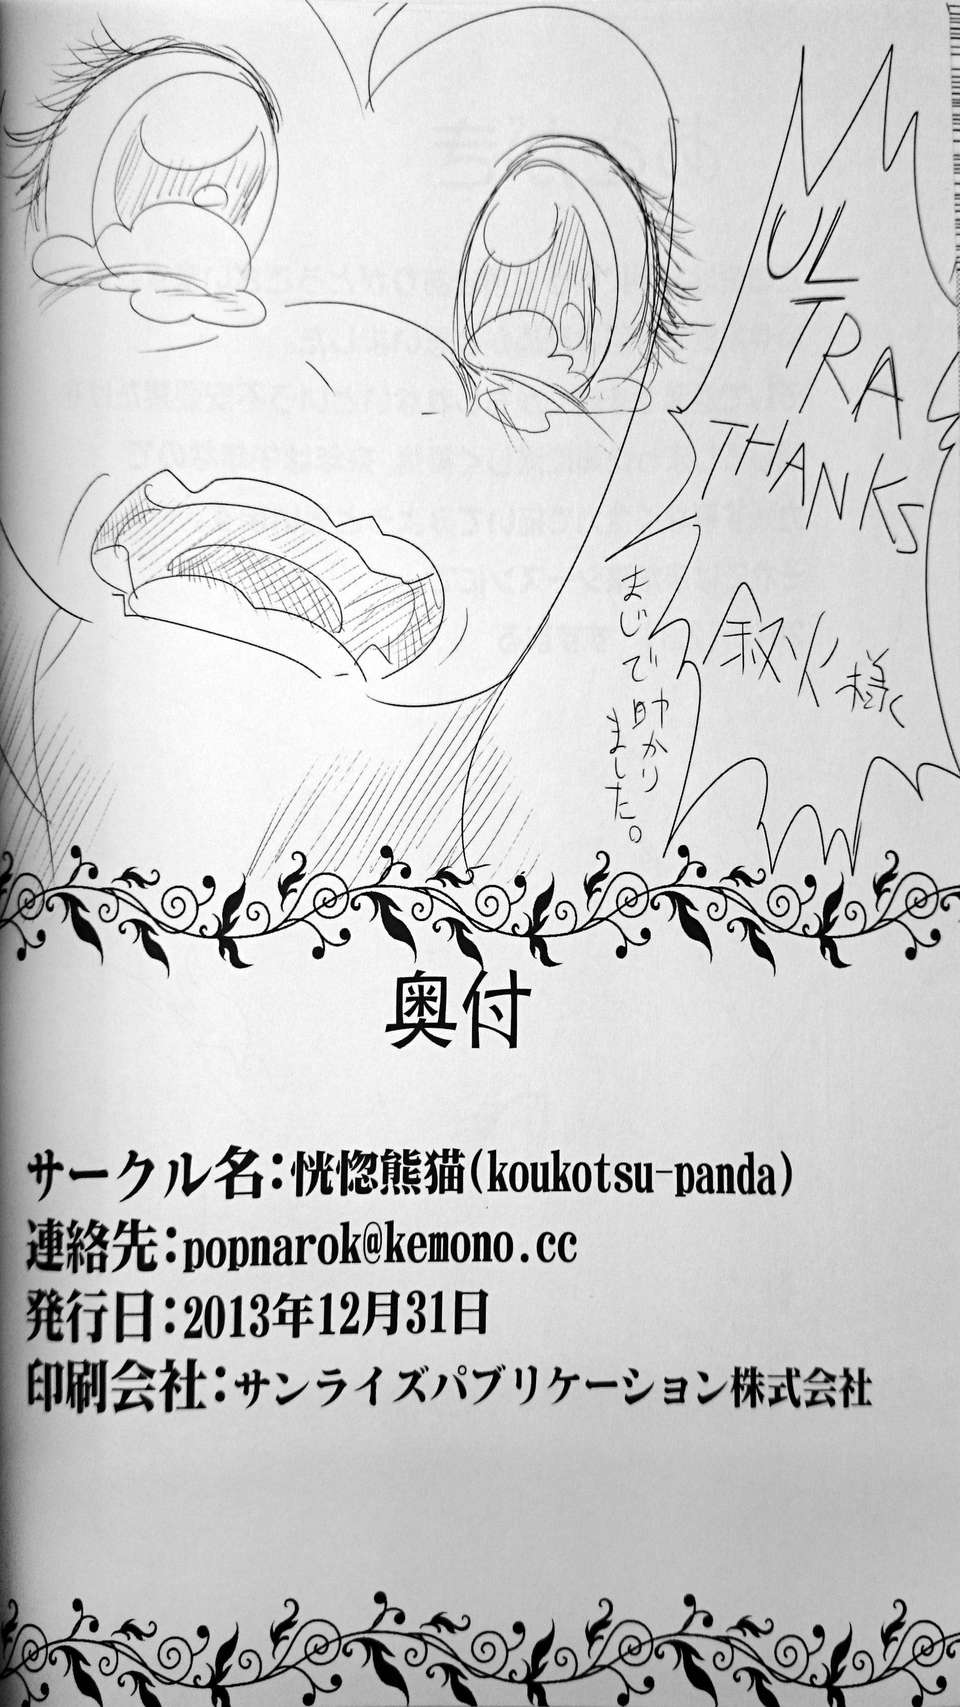 ULTRA
THANKS
叙火様
まじで助かり
ました。
奥付
サークル名:恍惚熊猫(koukotsu-panda)
連絡先:popnarok@kemono.cc
発行日:2013年12月31日
印刷会社:サンライズパブリケーション株式会社